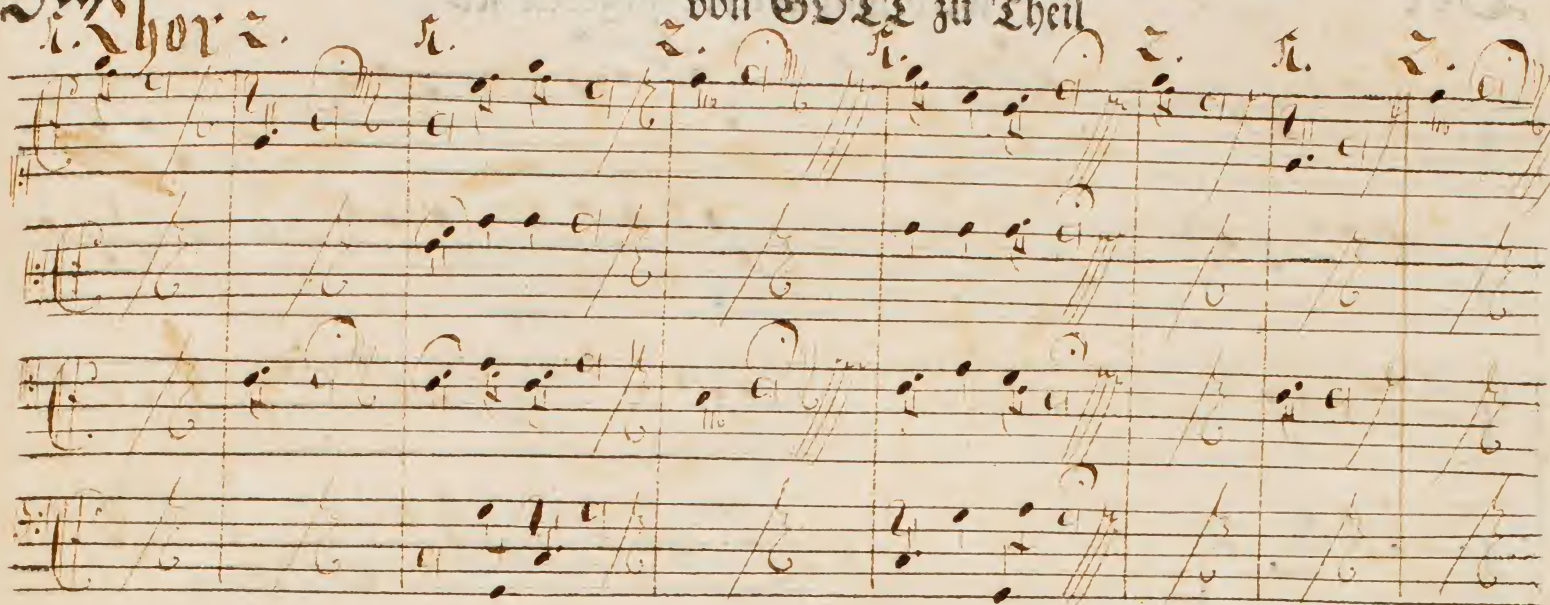 von GOTT zu Theil
1. Chor 2. 1. 2. 1. 2. 1. 2.